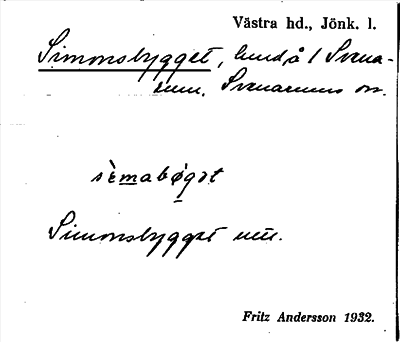 Västra hd., Jönk. l.
Simonsbygget, lund å 1 Svena-
rum, Svenarums sn.
sèmabøgət
Simonsbygget
Fritz Andersson 1932.